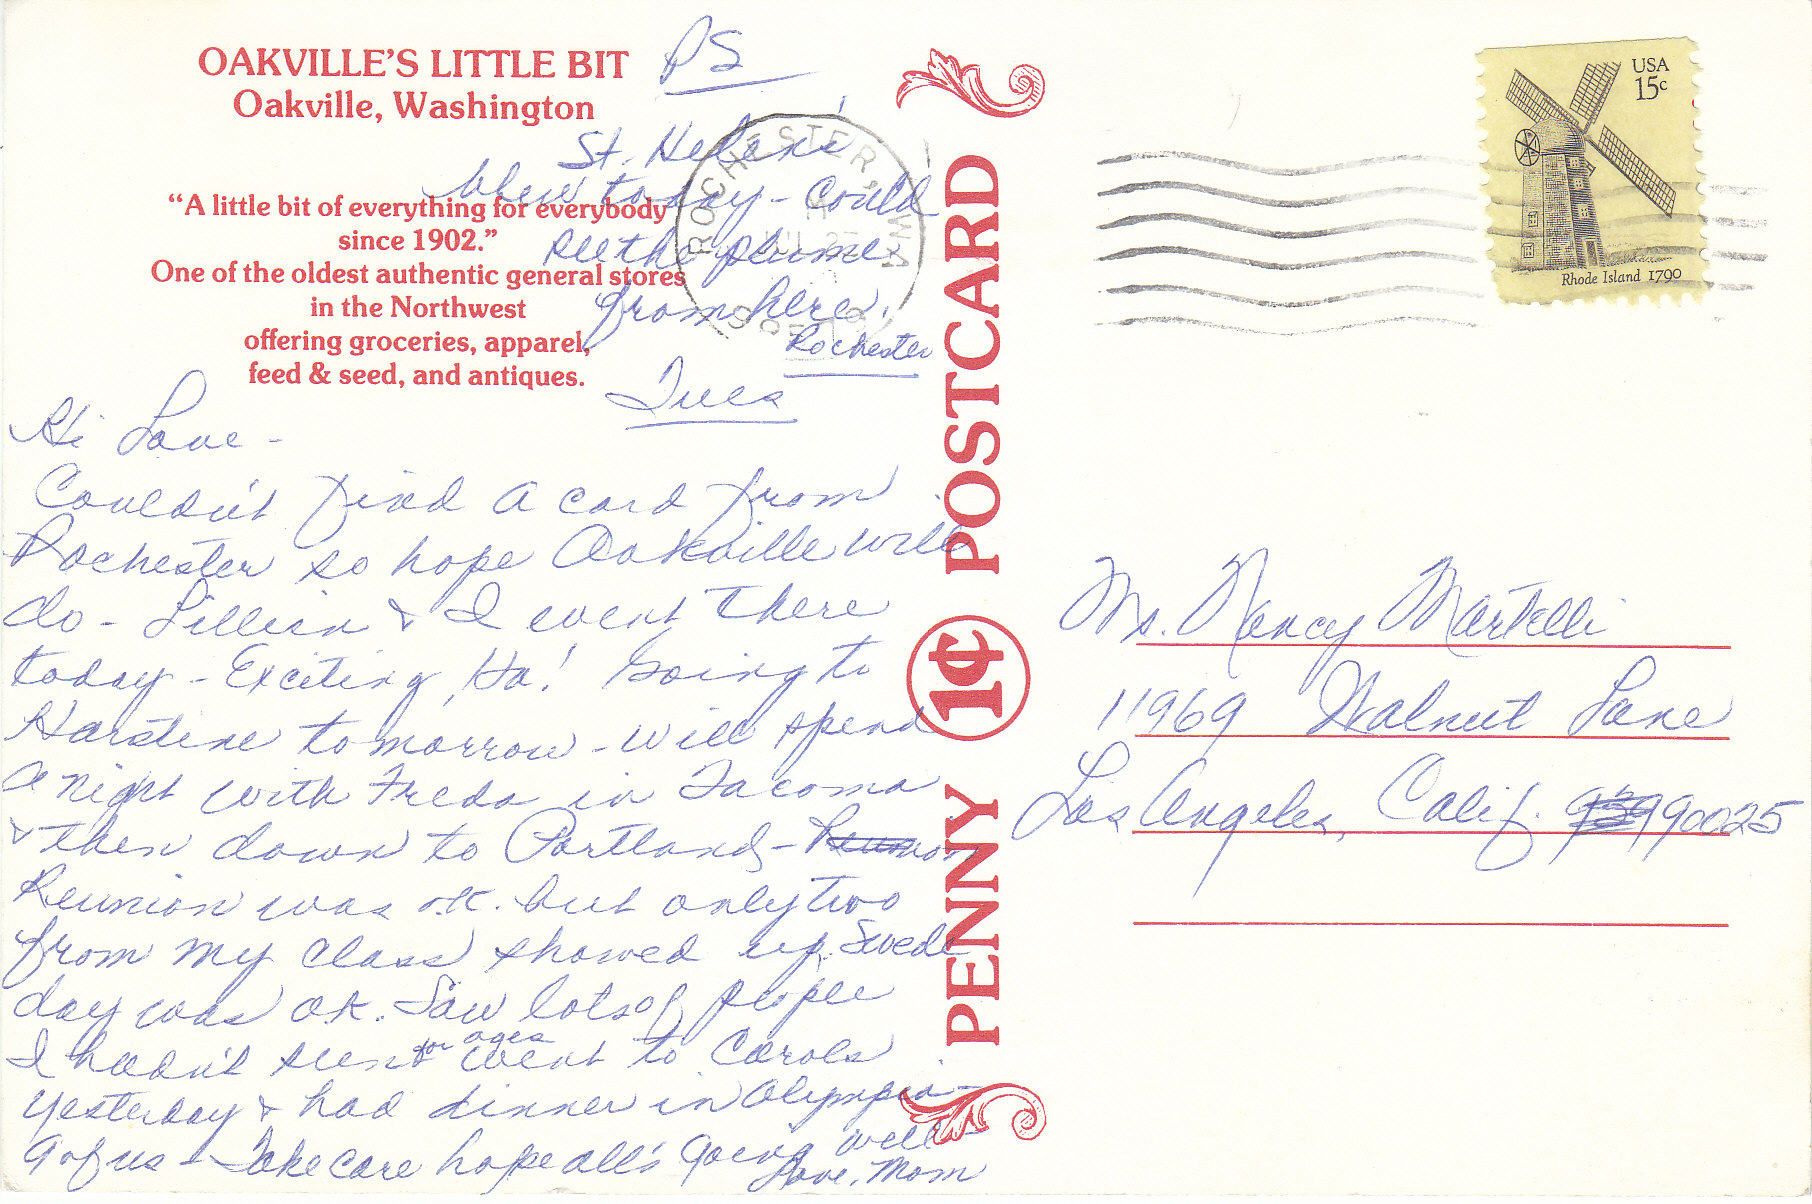 OAKVILLE'S LITTLE BIT
Oakville, Washington
"A little bit of everything for everybody
since 1902."
One of the oldest authentic general stores
in the Northwest
offering groceries, apparel,
feed & seed, and antiques.
PS
St. Helens
blew today - could
see the plume
from here.
Rochester
Tues
Hi Love -
Couldn't find a card from
Rochester so hope Oakville will
do - Lillian & I went there
today - Exciting, Ha! Going to
Harstine tomorrow - will spend
a night with Freda in Tacoma
& then down to Portland -
Reunion was o.k. but only two
from my class showed up. Swede
day was o.k. Saw lots of people
I hadn't seen for ages went to Carols
yesterday & had dinner in Olympia -
9 of us - Take care hope all's going well -
Love, Mom
PENNY 1¢ POSTCARD
ROCHESTER, WA
98579
USA
15c
Rhode Island 1790
Ms. Nancy Martelli
11969 Walnut Lane
Los Angeles, Calif. 90025